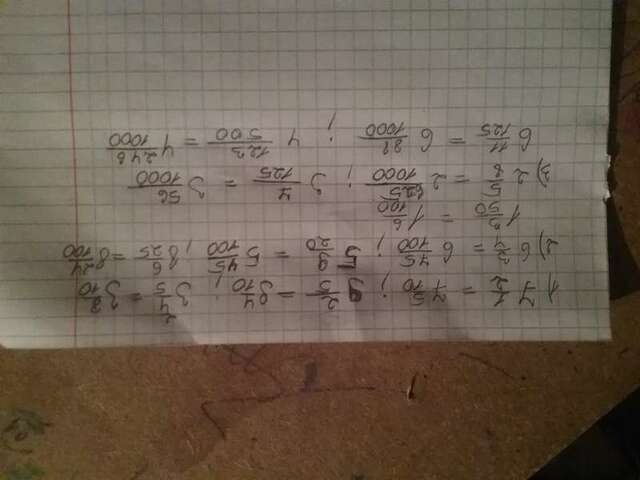 1) 7 1/2 = 7 5/10 ; 9 2/5 = 9 4/10 ; 3 4/5 = 3 8/10
2) 6 3/4 = 6 75/100 ; 5 9/20 = 5 45/100 ; 8 6/25 = 8 24/100
1 3/50 = 1 6/100
3) 2 5/8 = 2 625/1000 ; 3 7/125 = 3 56/1000
6 11/125 = 6 88/1000 ; 4 123/500 = 4 246/1000